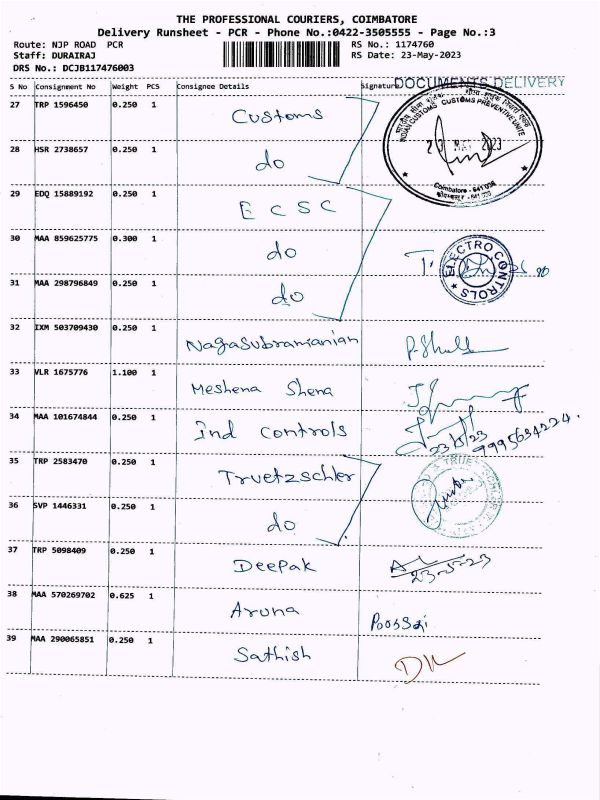 THE PROFESSIONAL COURIERS, COIMBATORE
Delivery Runsheet - PCR - Phone No.:0422-3505555 - Page No.:3
Route: NJP ROAD PCR
RS No.: 1174760
Staff: DURAIRAJ
RS Date: 23-May-2023
DRS No.: DCJB117476003
DOCUMENTS DELIVERY
S No Consignment No Weight PCS Consignee Details Signature
27 TRP 1596450 0.250 1 Customs
INDIAN CUSTOMS CUSTOMS PREVENTIVE UNIT
23 MAY 2023
Coimbatore - 641 018
28 HSR 2738657 0.250 1 do
29 EDQ 15889192 0.250 1 E C S C
30 MAA 859625775 0.300 1 do
ELECTRO CONTROLS
31 MAA 298796849 0.250 1 do
32 IXM 503709430 0.250 1 Nagasubramanian
33 VLR 1675776 1.100 1 Meshena Shena
34 MAA 101674844 0.250 1 Ind Controls 23/5/23 9995634224.
35 TRP 2583470 0.250 1 Truetzschler
36 SVP 1446331 0.250 1 do
37 TRP 5098409 0.250 1 Deepak 23-5-23
38 MAA 570269702 0.625 1 Aruna
39 MAA 290065851 0.250 1 Sathish